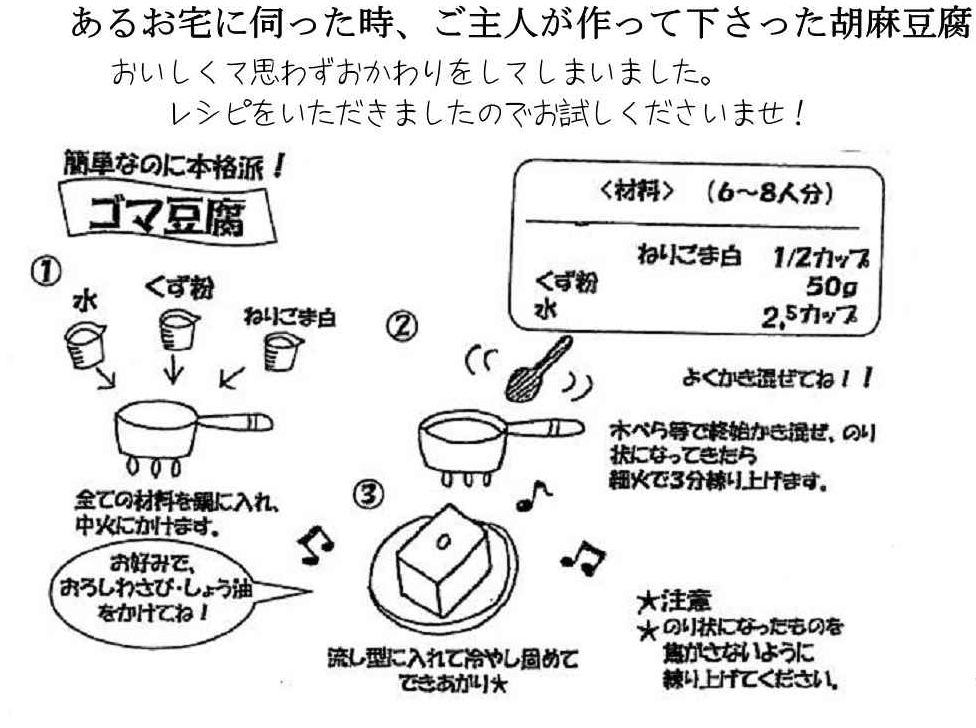 あるお宅に伺った時、ご主人が作って下さった胡麻豆腐
おいしくて思わずおかわりをしてしまいました。
レシピをいただきましたのでお試しくださいませ！
簡単なのに本格派！
ゴマ豆腐
〈材料〉 （6〜8人分）
ねりごま白 1/2カップ
くず粉 50g
水 2,5カップ
①
水
くず粉
ねりごま白
全ての材料を鍋に入れ、
中火にかけます。
②
よくかき混ぜてね！！
木べら等で終始かき混ぜ、のり
状になってきたら
細火で3分練り上げます。
③
お好みで、
おろしわさび・しょう油
をかけてね！
流し型に入れて冷やし固めて
できあがり★
★注意
★のり状になったものを
焦がさないように
練り上げてください。